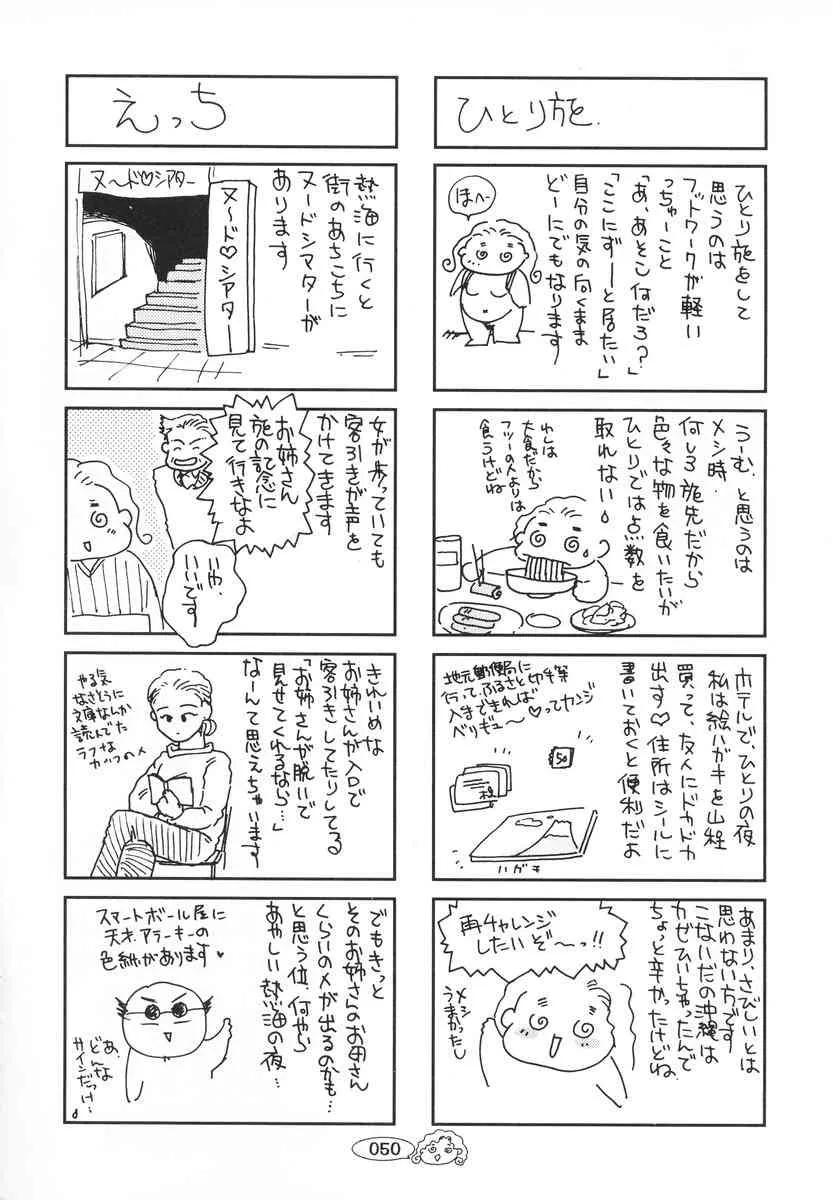 ひとり旅.
ひとり旅をして
思うのは
フットワークが軽い
っちゅーこと
「あ、あそこ何だろ?」
「ここにずーと居たい」
自分の気の向くまま
どーにでもなります
ほへ〜
うーむ、と思うのは
メシ時.
何しろ旅先だから
色々な物を食いたいが
ひとりでは点数を
取れない
わしは
大食だから
フツーの人よりは
食うけどね
ホテルで、ひとりの夜
私は絵ハガキを山程
買って、友人にドカドカ
出す♡住所はシールに
書いておくと便利だよ
地元郵便局に
行って、ふるさと切手等
入手できれば
ベリギュー〜♡ってカンジ
50
ハガキ
あまり、さびしいとは
思わない方です
こないだの沖縄は
カゼひいちゃったんで
ちょっと辛かったけどね
再チャレンジ
したいぞ〜っ!!
メシ
うまかったし
えっち
熱海に行くと
街のあちこちに
ヌードシアターが
あります
ヌ〜ド♡シアター
ヌ〜ド♡シアター
女が歩っていても
客引きが声を
かけてきます
お姉さん
旅の記念に
見て行きなよ
いや、
いいです
きれいめな
お姉さんが入口で
客引きしてたりしてる
「お姉さんが脱いで
見せてくれるなら…」
なーんて思えちゃいます
やる気
なさそうに
文庫なんか
読んでた
ラフな
カッコの人
でもきっと
そのお姉さんのお母さん
くらいの人が出るのかも…
と思う位、何やら
あやしい熱海の夜…
スマートボール屋に
天才アラーキーの
色紙があります♥
あ、
どんな
カオしてたっけ…
050